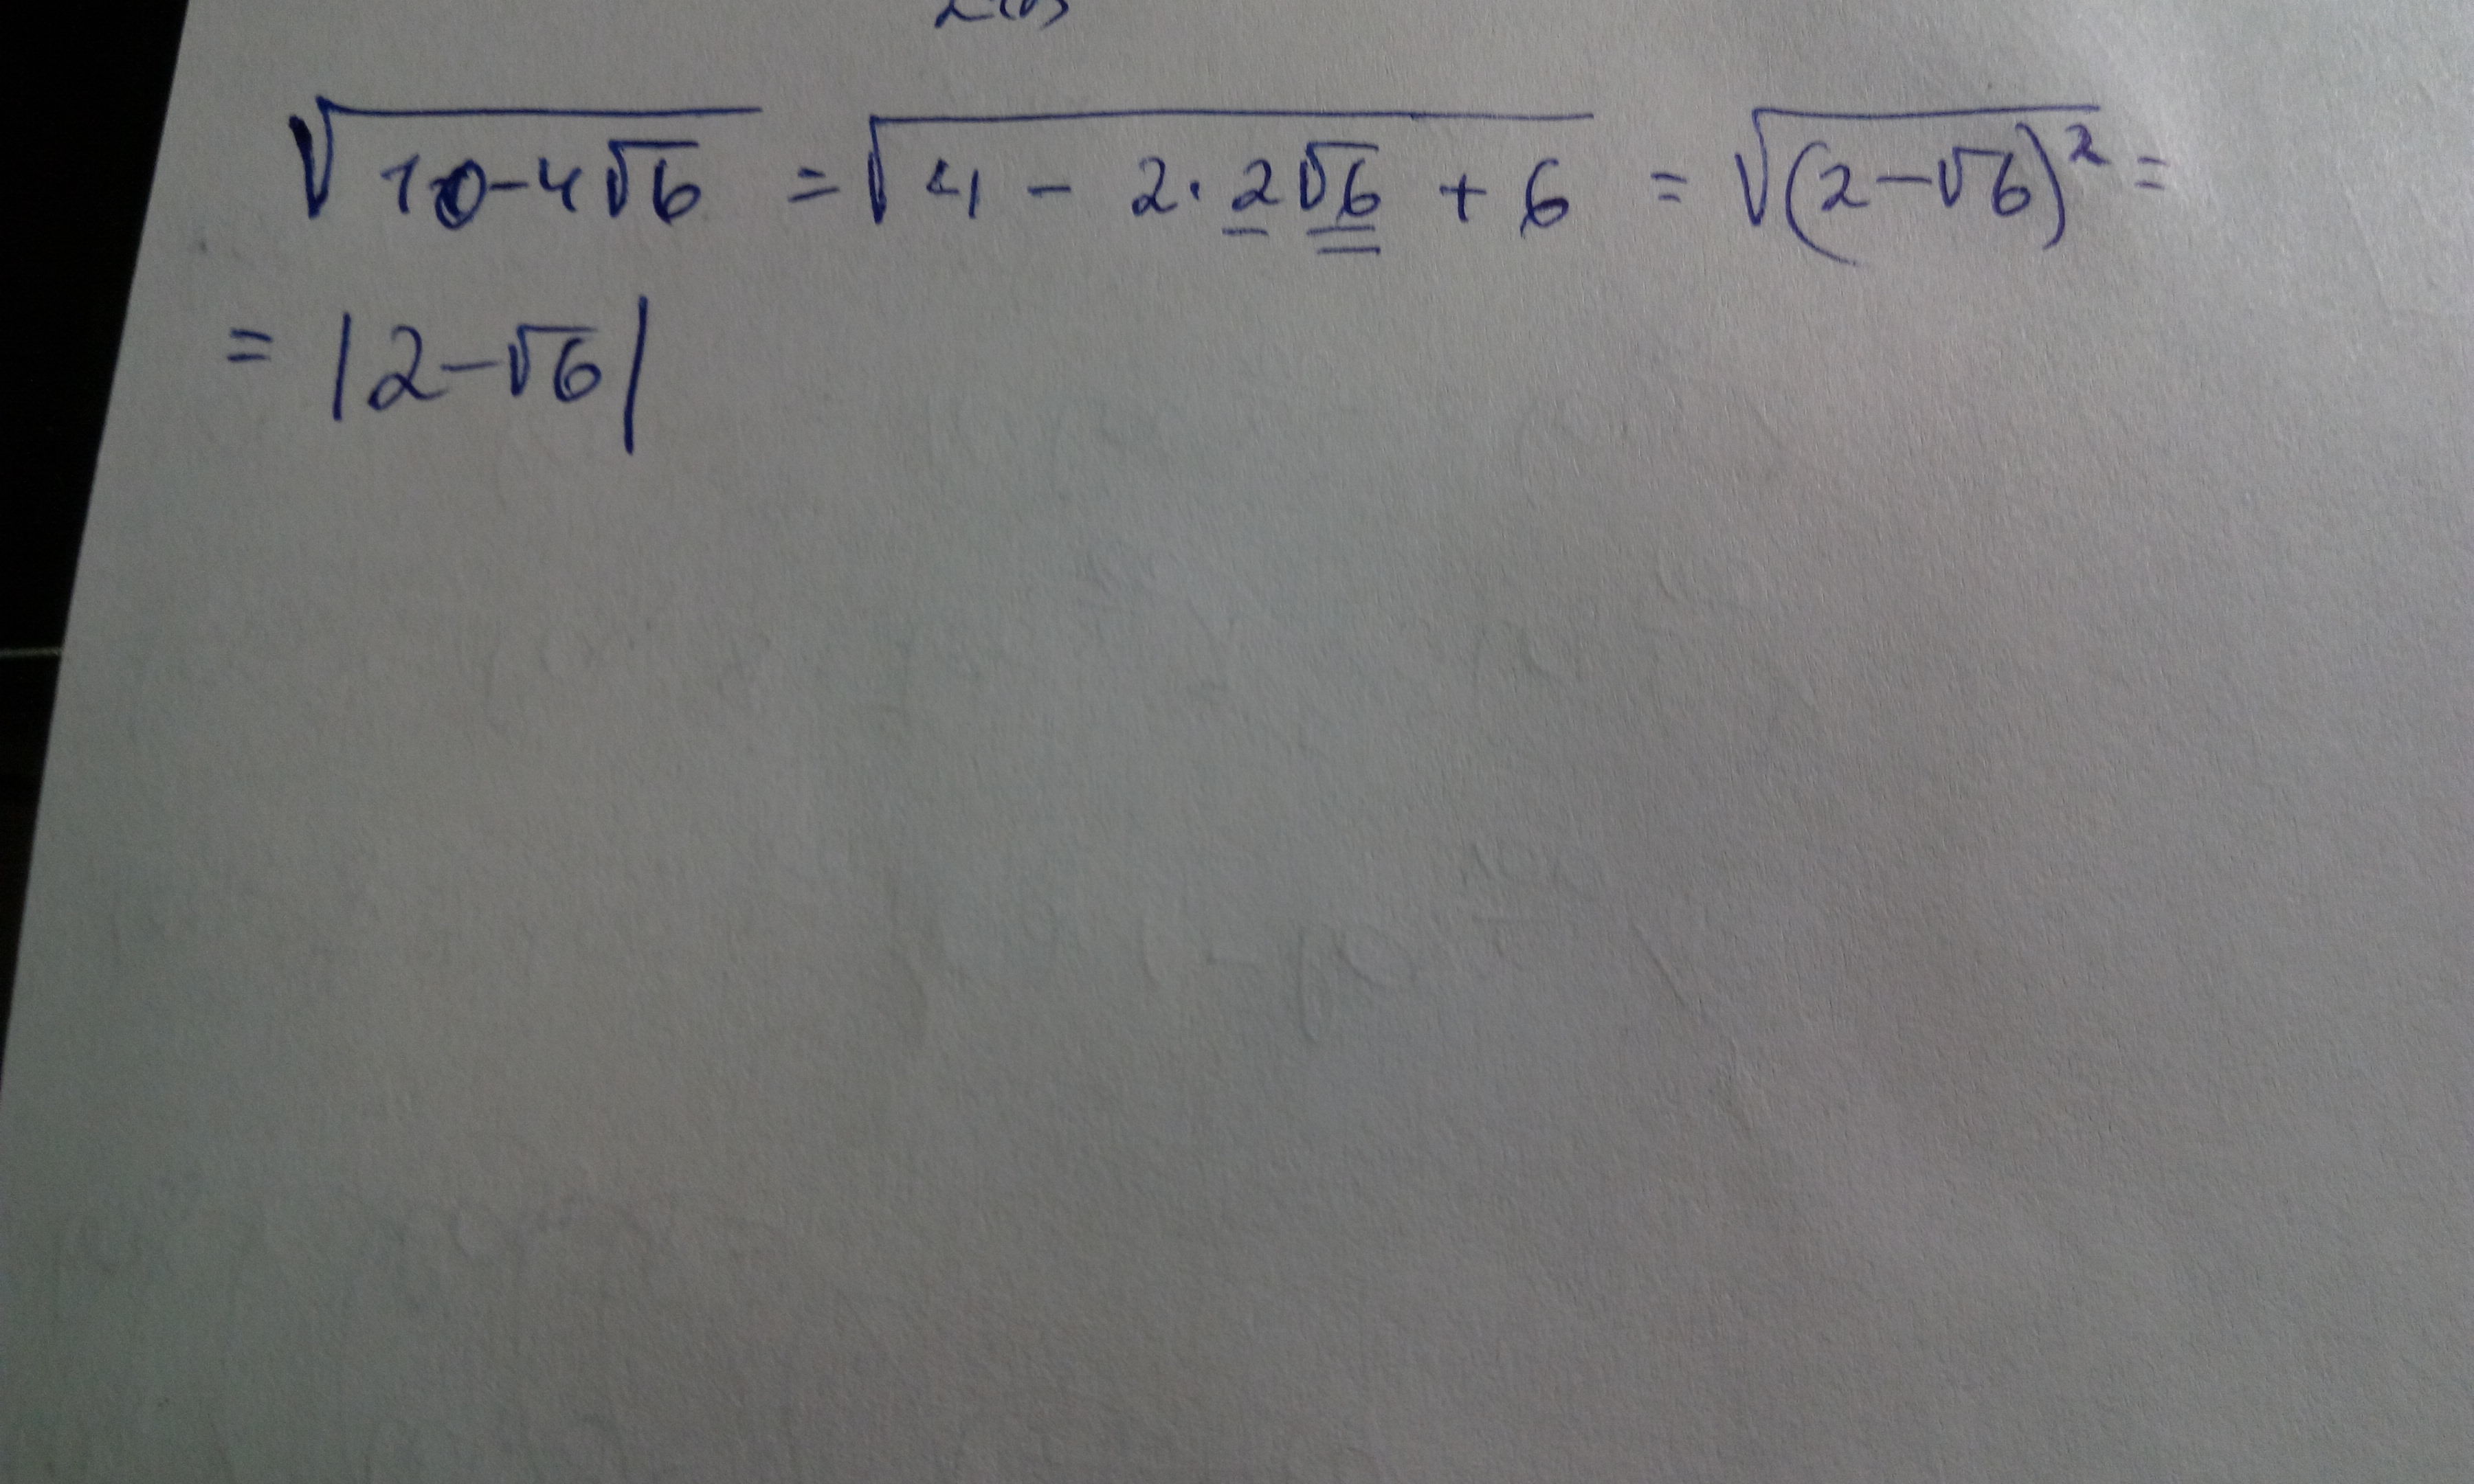 √(10-4√6) = √(4 - 2·2√6 + 6) = √((2-√6)²) =
= |2-√6|